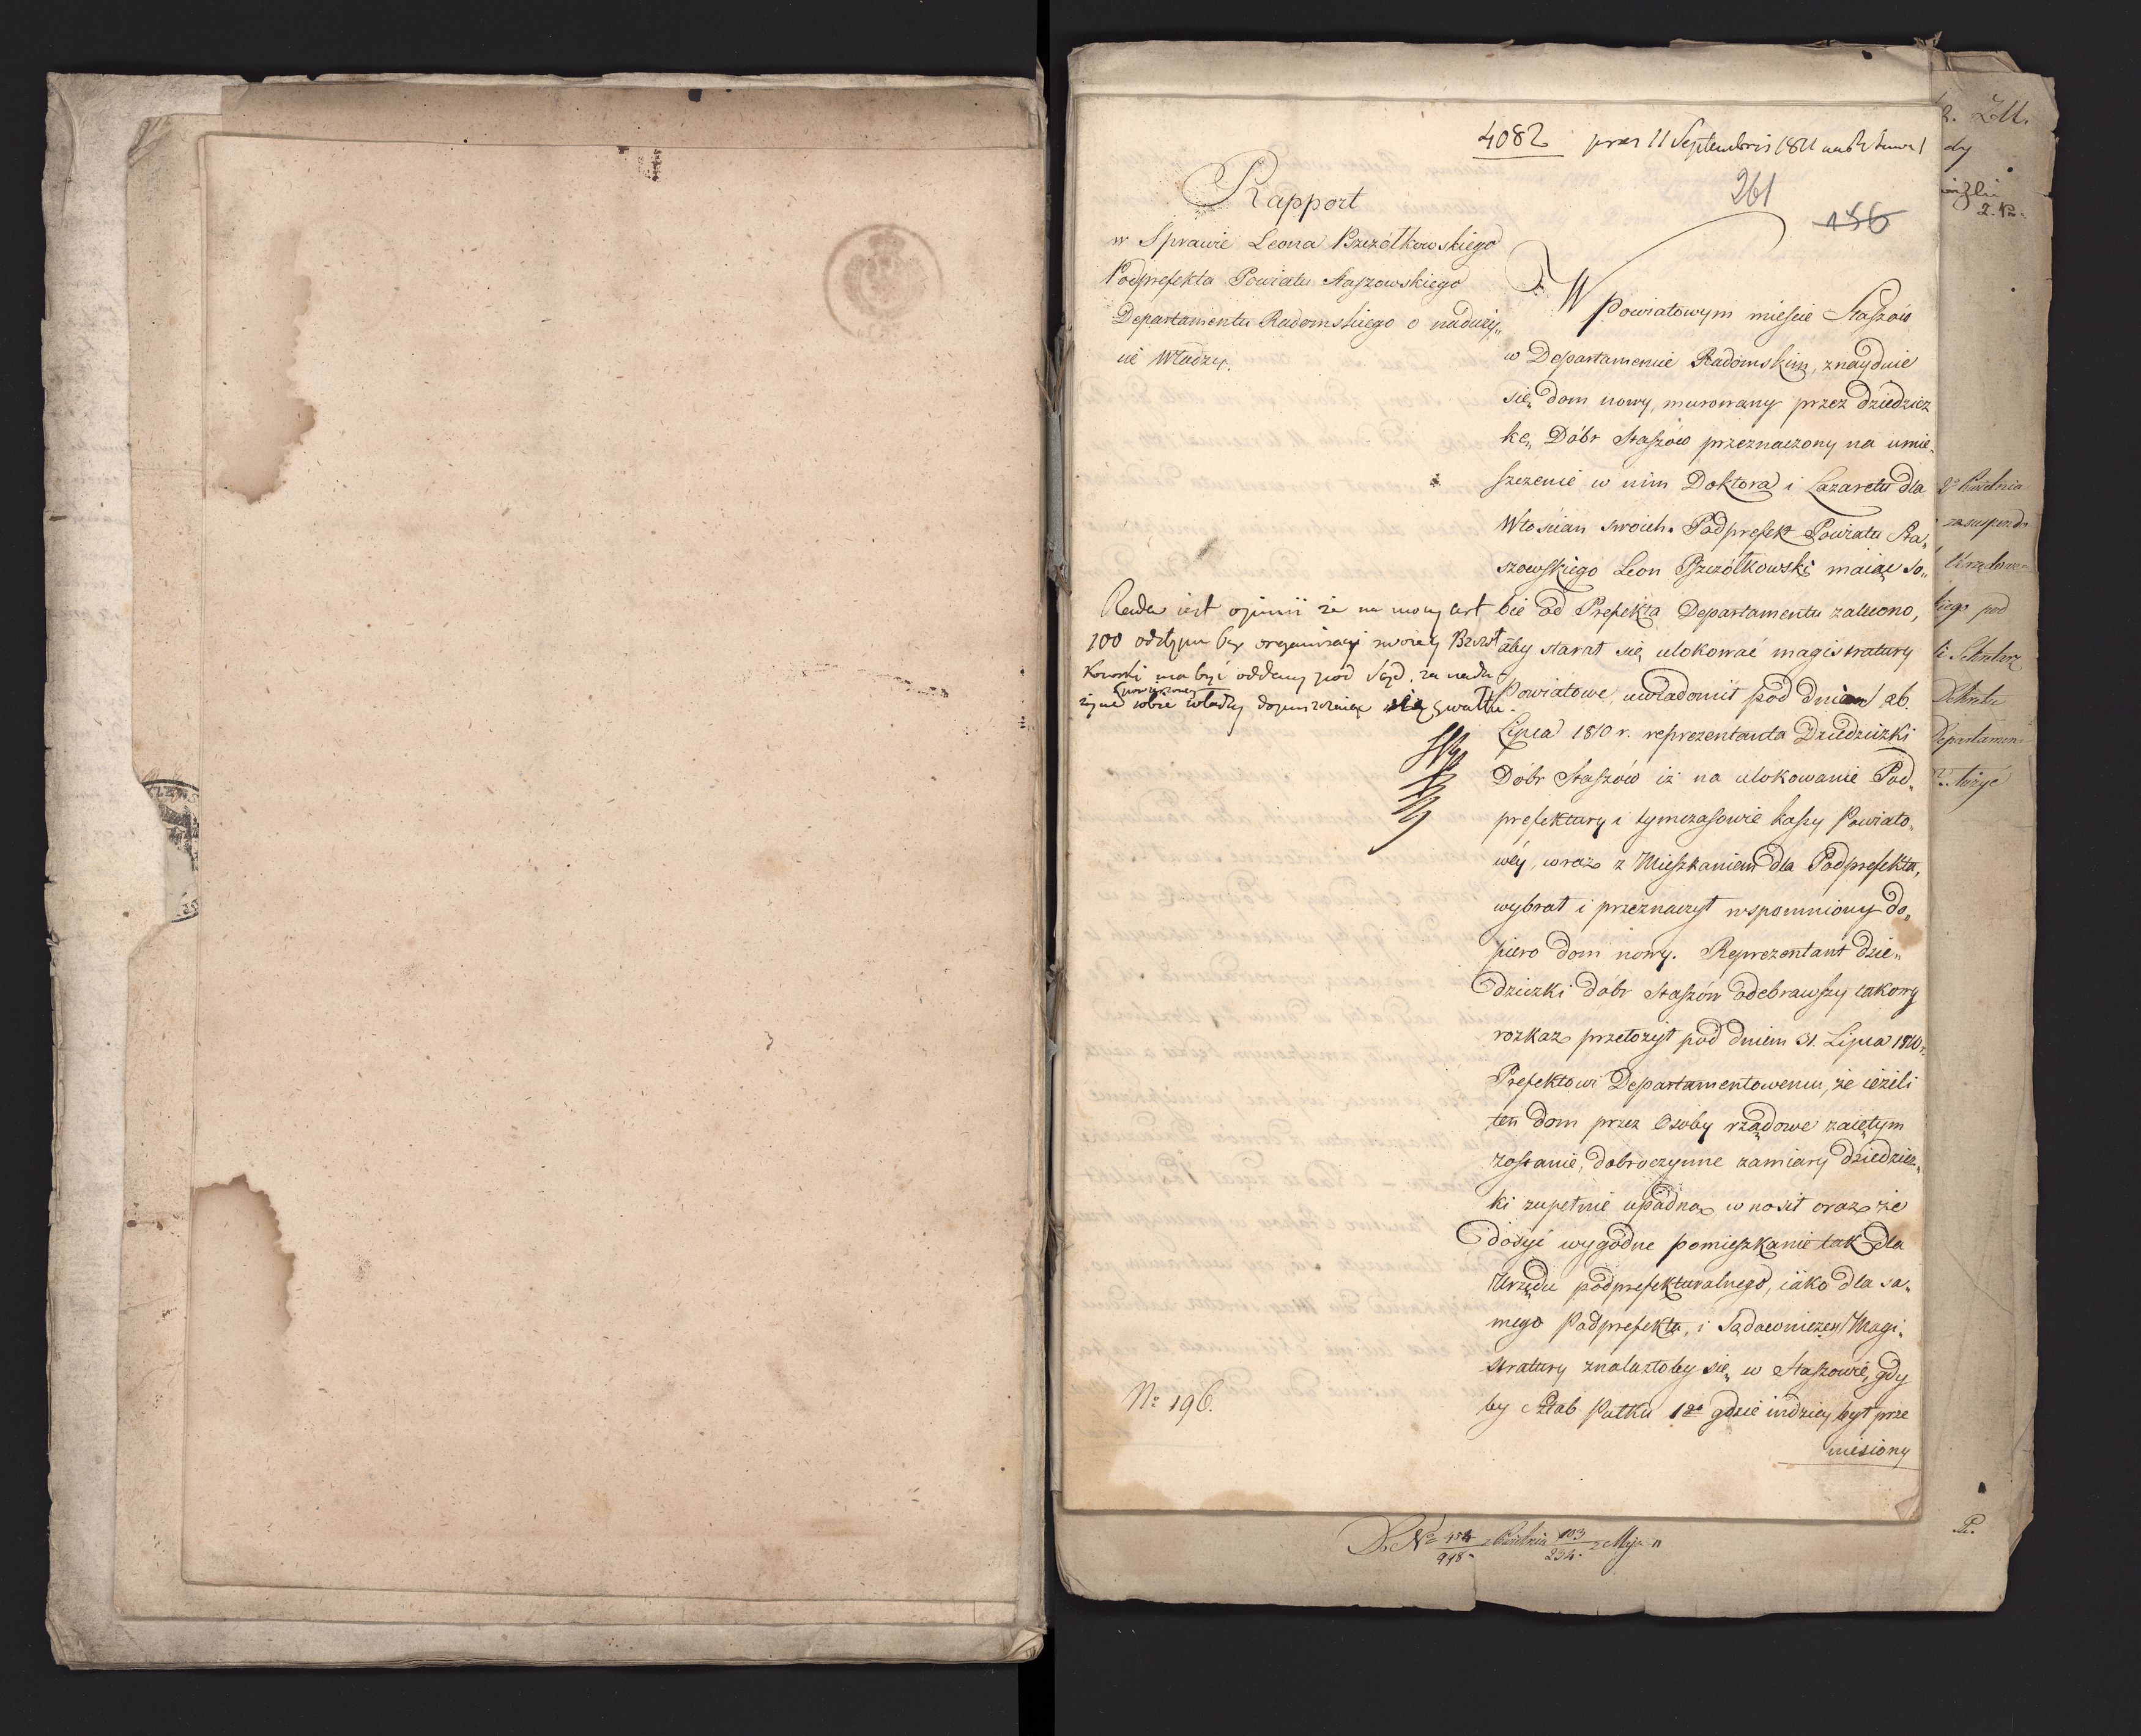 4082 pres 11 Septembris 1811
261
156
Rapport
w Sprawie Leona Pszczółkowskiego
Podprefekta Powiatu Staszowskiego
Departamentu Radomskiego o naduży„
cie Władzy.
W Powiatowym mieście Staszów
w Departamencie Radomskim, znayduie
się dom nowy, murowany przez dziedzicz
kę Dóbr Staszów przeznaczony na umie„
szczenie w nim Doktora i Lazaretu dla
Włościan swoich. Podprefekt Powiatu Sta„
szowskiego Leon Pszczółkowski maiąc so„
bie od Prefekta Departamentu zalecono,
aby starał się ulokować magistratury
Powiatowe, uwiadomił pod dniem 26.
Lipca 1810 r. reprezentanta Dziedziczki
Dóbr Staszów iż na ulokowanie Pod„
prefektury i tymczasowie kassy Powiato„
wéy, wraz z Mieszkaniem dla Podprefekta,
wybrał i przeznaczył wspomniony do„
piero dom nowy. Reprezentant dzie„
dziczki dóbr Staszów odebrawszy takowy
rozkaz przełożył pod dniem 31. Lipca 1810 r.
Prefektowi Departamentowemu, że ieżeli
ten dom przez Osoby rządowe zaiętym
zostanie, dobroczynne zamiary dziedzicz„
ki zupełnie upadną, wnosił oraz że
dosyć wygodne pomieszkanie tak dla
Urzędu podprefekturalnego, iako dla sa„
mego Podprefekta, i Sądowniczey Magi„
stratury znalazłoby się w Staszowie, gdy
by Sztab Pułku 1go gdzie indziey był prze
niesiony
Rada iest opinii że na mocy art
100 odstępu 6go organizacyi swoiey Pszczół
kowski ma być oddany pod Sąd, za nadu„
życie powierzoney sobie władzy dopuszczenie się gwałtu.
No 196.
2. ZU.
dy
2 Kwietnia
za suspendo
Urzędowa
kiego pod
Sekretarz
Dekretu
Departamen
No 454/948 Kwietnia 103/234 Maja